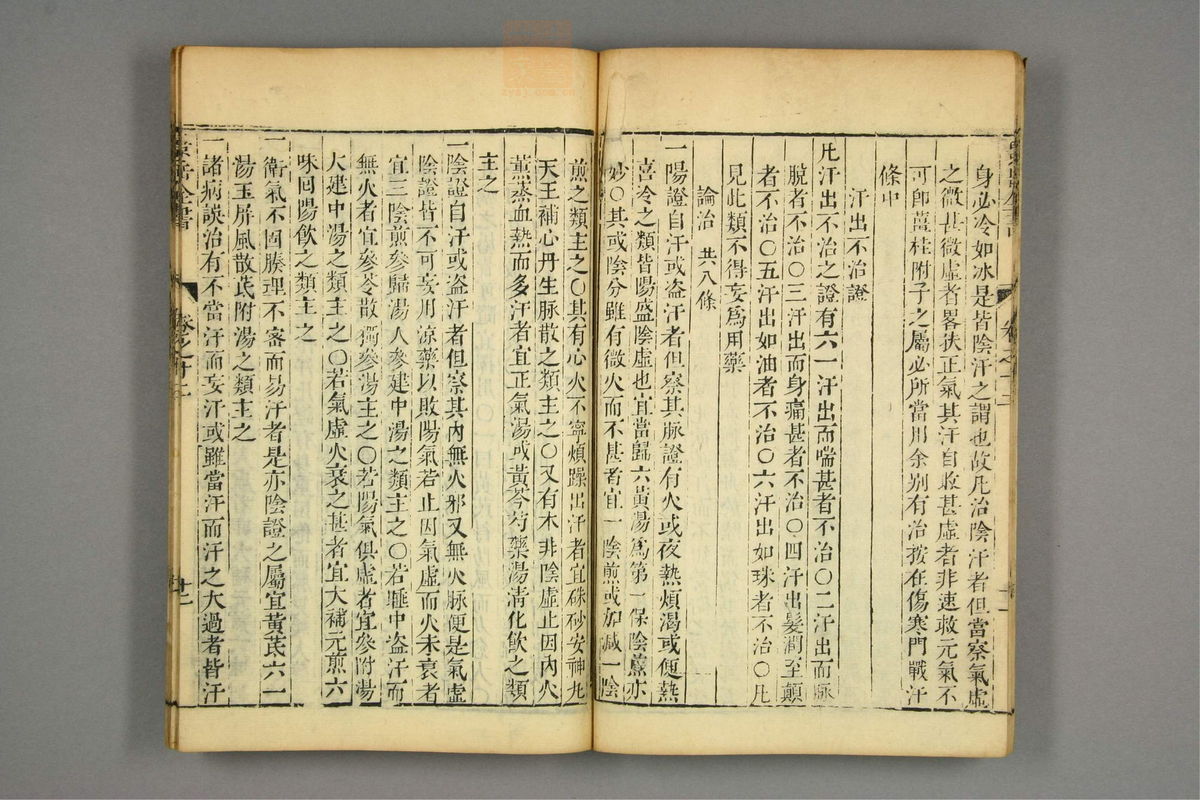 身必冷如冰是皆陰汗之謂也故凡治陰汗者但當察氣虛
之微甚微虛者畧扶正氣其汗自收甚虛者非速救元氣不
可卽薑桂附子之屬必所當用余別有治按在傷寒門戰汗
條中
汗出不治證
凡汗出不治之證有六一汗出而喘甚者不治〇二汗出而脉
脫者不治〇三汗出而身痛甚者不治〇四汗出髮潤至顛
者不治〇五汗出如油者不治〇六汗出如珠者不治〇凡
見此類不得妄爲用藥
論治 共八條
一陽證自汗或盗汗者但察其脉證有火或夜熱煩渴或便熱
喜冷之類皆陽盛陰虛也宜當歸六黃湯爲第一保陰煎亦
妙〇其或陰分雖有微火而不甚者宜一陰煎或加减一陰
煎之類主之〇其有心火不寧煩躁出汗者宜硃砂安神丸
天王補心丹生脉散之類主之〇又有本非陰虛止因內火
薰蒸血熱而多汗者宜正氣湯或黃芩芍藥湯清化飲之類
主之
一陰證自汗或盗汗者但察其內無火邪又無火脉便是氣虛
陰證皆不可妄用涼藥以敗陽氣若止因氣虛而火未衰者
宜三陰煎參歸湯人參建中湯之類主之〇若睡中盗汗而
無火者宜參苓散獨參湯主之〇若陽氣俱虛者宜參附湯
大建中湯之類主之〇若氣虛火衰之甚者宜大補元煎六
味回陽飲之類主之
一衛氣不固腠理不密而易汗者是亦陰證之屬宜黃芪六一
湯玉屏風散芪附湯之類主之
一諸病誤治有不當汗而妄汗或雖當汗而汗之大過者皆汗
景岳全書
卷之十二
十二